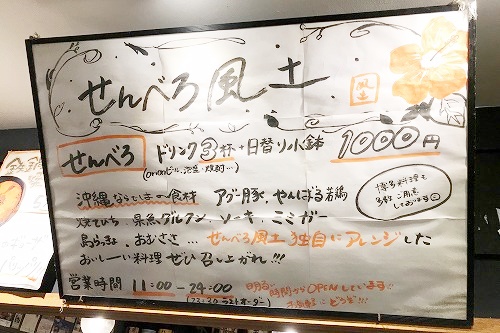 せんべろ風土
風土
せんべろ ドリンク3杯+日替り小鉢 1000円
(orionビール、泡盛、焼酎…)
沖縄ならではの食材 アグー豚、やんばる若鶏
焼てびち、県魚グルクン、ソーキ、ミミガー
島らっきょ、おむささ… せんべろ風土独自にアレンジした
おいしーい料理ぜひ召し上がれ!!!
博多料理も
多数ご用意
しております
営業時間 11:00-24:00
(23:30ラストオーダー)
時間からOPENしています!!
どうぞ!!!